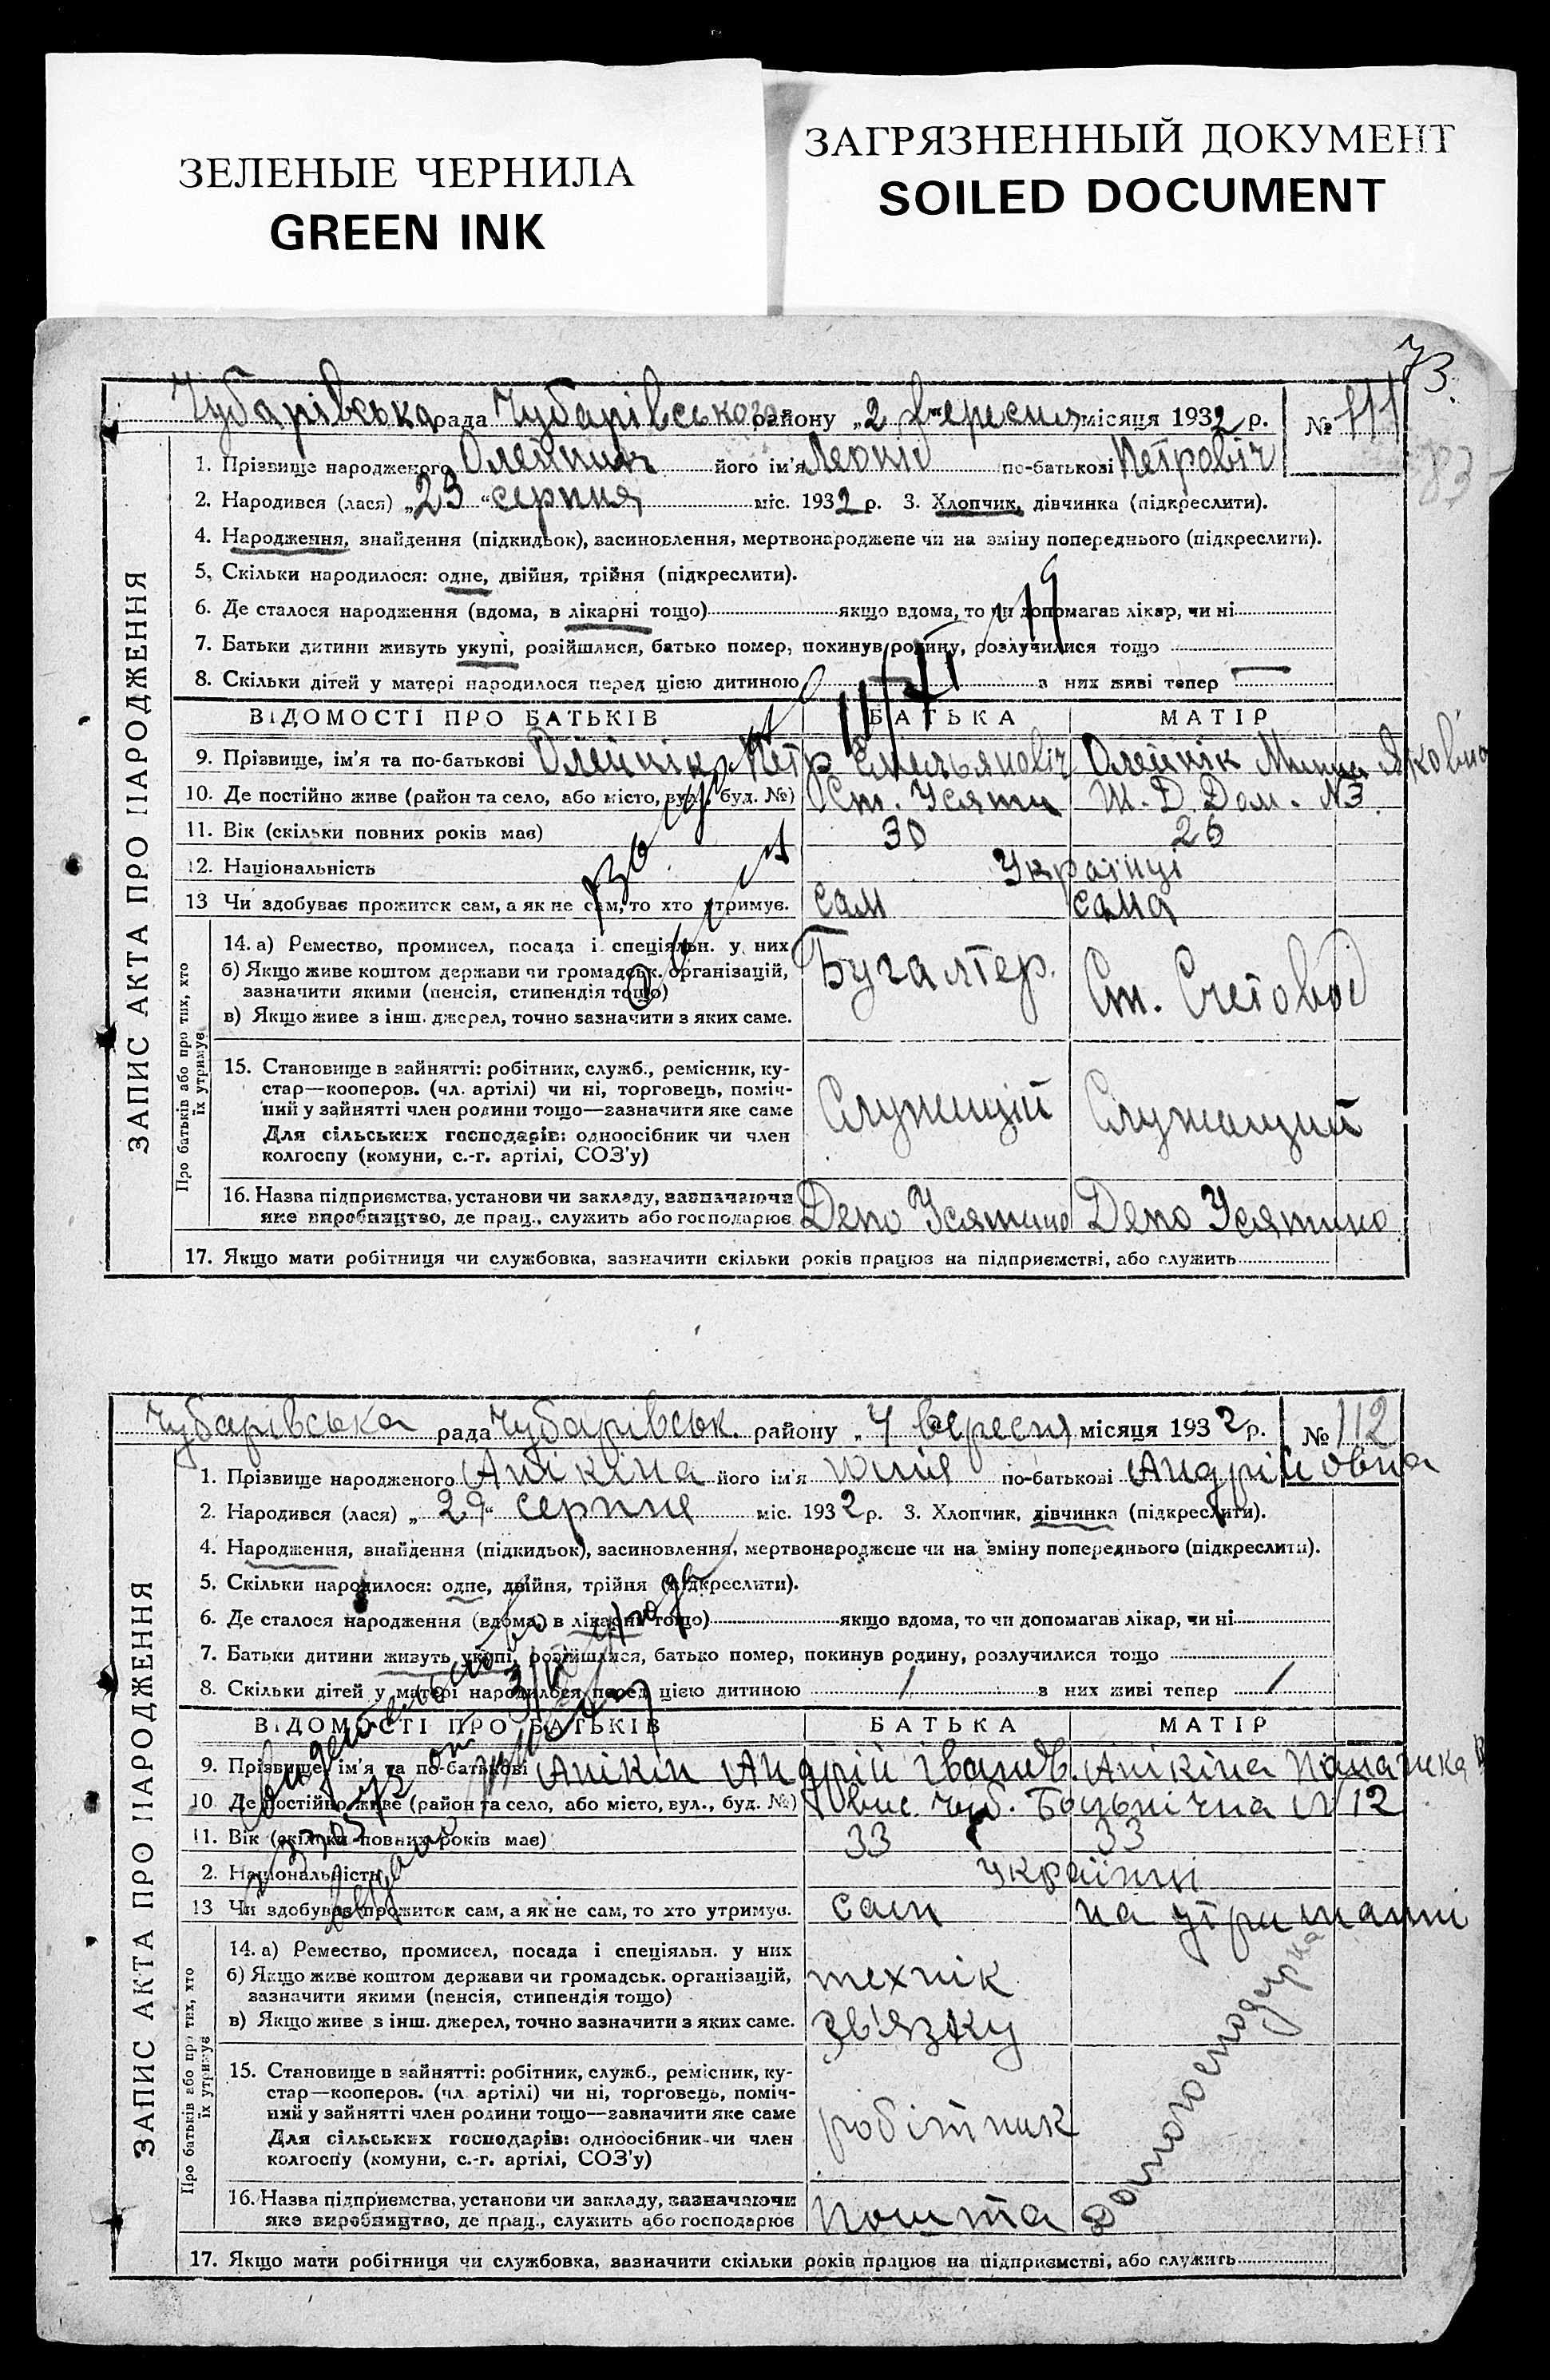 ЗЕЛЕНЫЕ ЧЕРНИЛА
GREEN INK
ЗАГРЯЗНЕННЫЙ ДОКУМЕНТ
SOILED DOCUMENT
73
83
Чубарівська рада Чубарівського району „2 вересня місяця 1932 р. № 111
ЗАПИС АКТА ПРО НАРОДЖЕННЯ
1. Прізвище народженого Олейник його ім'я Леонід по-батькові Петровіч
2. Народився (лася) „23“ серпня міс. 1932 р. 3. Хлопчик, дівчинка (підкреслити).
4. Народження, знайдення (підкидьок), засиновлення, мертвонароджене чи на зміну попереднього (підкреслити).
5, Скільки народилося: одне, двійня, трійня (підкреслити).
6. Де сталося народження (вдома, в лікарні тощо) якщо вдома, то чи допомагав лікар, чи ні
7. Батьки дитини живуть укупі, розійшлися, батько помер, покинув родину, розлучилися тощо
8. Скільки дітей у матері народилося перед цією дитиною — з них живі тепер —
ВІДОМОСТІ ПРО БАТЬКІВ БАТЬКА МАТІР
9. Прізвище, ім'я та по-батькові Олейнік Петр Емельяновіч Олейнік Яковна
10. Де постійно живе (район та село, або місто, вул., буд. №) Ст. Усяти Ж.Д. Дом. №3
11. Вік (скільки повних років має) 30 26
12. Національність Українці
13 Чи здобуває прожиток сам, а як не сам, то хто утримує. сам сама
Про батьків або про тих, хто їх утримує
14. а) Ремество, промисел, посада і спеціяльн. у них
б) Якщо живе коштом держави чи громадськ. організацій,
зазначити якими (пенсія, стипендія тощо)
в) Якщо живе з інш. джерел, точно зазначити з яких саме.
Бугалтер. Ст. Счетовод
15. Становище в зайнятті: робітник, служб., ремісник, ку-
стар—кооперов. (чл. артілі) чи ні, торговець, поміч-
ний у зайнятті член родини тощо—зазначити яке саме
Для сільських господарів: одноосібник чи член
колгоспу (комуни, с.-г. артілі, СОЗ'у)
Служещій Служащий
16. Назва підприємства, установи чи закладу, зазначаючи
яке виробництво, де прац., служить або господарює
Депо Усятино Депо Усятино
17. Якщо мати робітниця чи службовка, зазначити скільки років працює на підприємстві, або служить
Чубарівська рада Чубарівськ. району „4 вересня місяця 1932 р. № 112
ЗАПИС АКТА ПРО НАРОДЖЕННЯ
1. Прізвище народженого Анікіна його ім'я Юлія по-батькові Андрійовна
2. Народився (лася) „29“ серпня міс. 1932 р. 3. Хлопчик, дівчинка (підкреслити).
4. Народження, знайдення (підкидьок), засиновлення, мертвонароджене чи на зміну попереднього (підкреслити).
5. Скільки народилося: одне, двійня, трійня (підкреслити).
6. Де сталося народження (вдома, в лікарні тощо) якщо вдома, то чи допомагав лікар, чи ні
7. Батьки дитини живуть укупі, розійшлися, батько помер, покинув родину, розлучилися тощо
8. Скільки дітей у матері народилося перед цією дитиною 1 з них живі тепер 1
ВІДОМОСТІ ПРО БАТЬКІВ БАТЬКА МАТІР
9. Прізвище, ім'я та по-батькові Анікін Андрій Іванов. Анікіна
10. Де постійно живе (район та село, або місто, вул., буд. №) Чуб. Больнічна № 12
11. Вік (скільки повних років має) 33 33
2. Національність Українці
13 Чи здобуває прожиток сам, а як не сам, то хто утримує. сам на утриманні
Про батьків або про тих, хто їх утримує
14. а) Ремество, промисел, посада і спеціяльн. у них
б) Якщо живе коштом держави чи громадськ. організацій,
зазначити якими (пенсія, стипендія тощо)
в) Якщо живе з інш. джерел, точно зазначити з яких саме.
технік
зв'язку
Домогосподарка
15. Становище в зайнятті: робітник, служб., ремісник, ку-
стар—кооперов. (чл. артілі) чи ні, торговець, поміч-
ний у зайнятті член родини тощо—зазначити яке саме
Для сільських господарів: одноосібник чи член
колгоспу (комуни, с.-г. артілі, СОЗ'у)
робітник
16. Назва підприємства, установи чи закладу, зазначаючи
яке виробництво, де прац., служить або господарює
пошта
17. Якщо мати робітниця чи службовка, зазначити скільки років працює на підприємстві, або служить